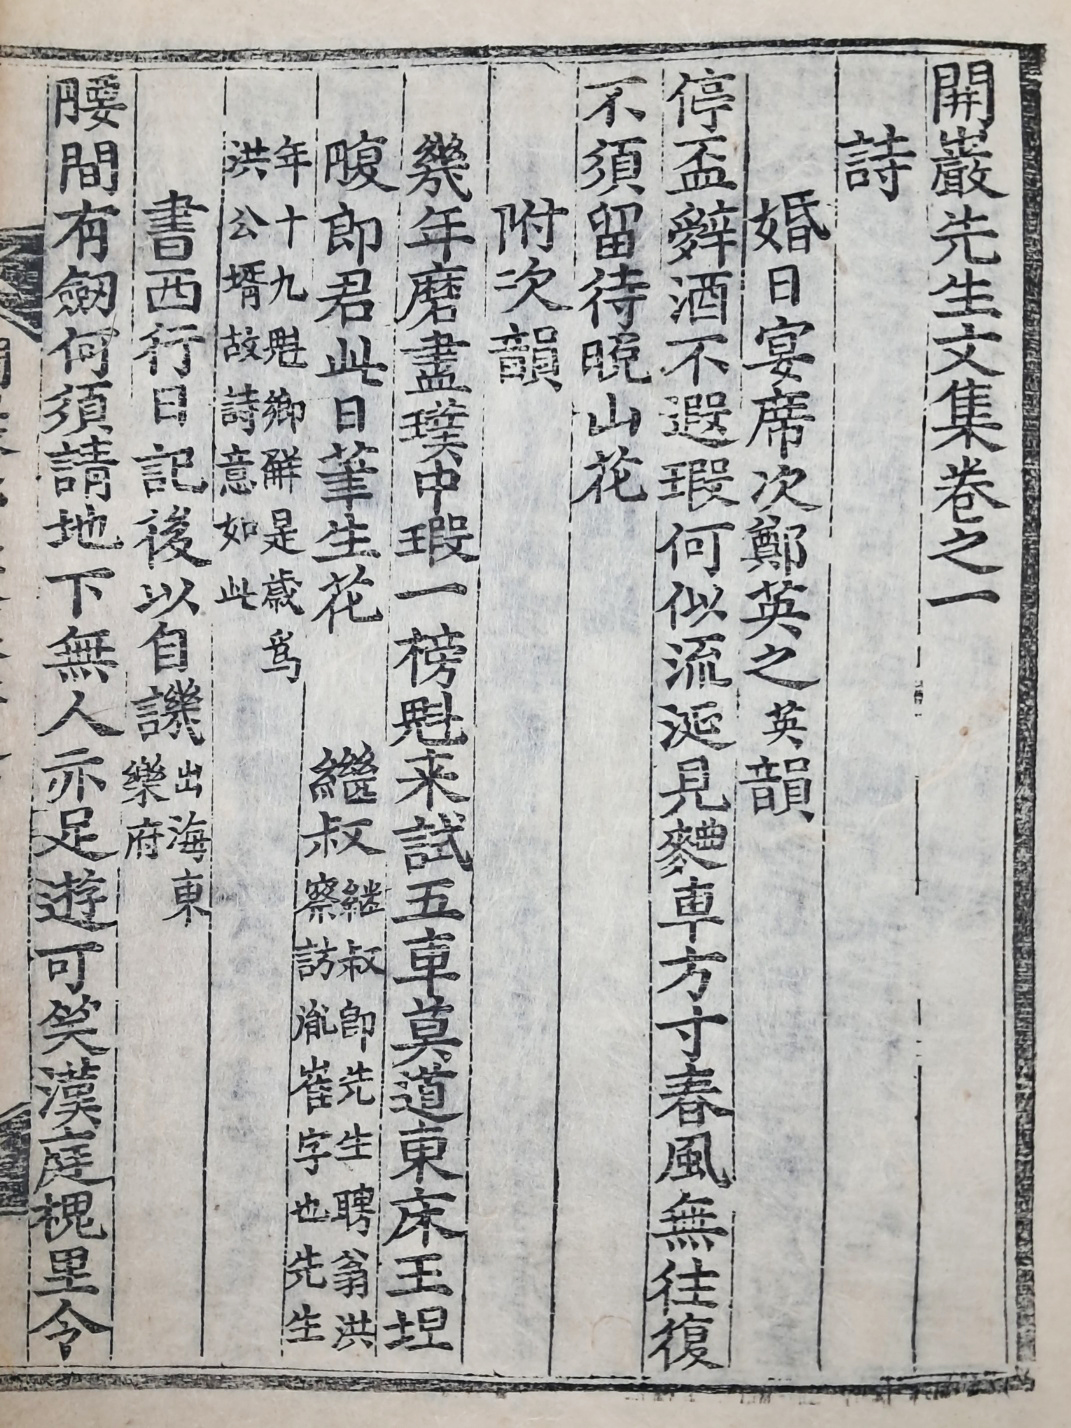 開巖先生文集卷之一
詩
婚日宴席次鄭英之英韻
停盃辭酒不遐瑕何似流涎見麯車方寸春風無往復
不須留待晚山花
附次韻
幾年磨盡璞中瑕一榜魁来試五車莫道東床王坦
腹郎君此日筆生花 繼叔
継叔即先生聘翁洪
察訪胤崔字也先生
年十九魁鄉觧是歲爲
洪公壻故詩意如此
書西行日記後以自譏
出海東
樂府
腰間有劒何須請地下無人亦足遊可笑漢庭槐里令